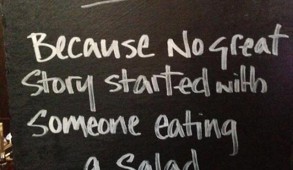 Because No great
Story started with
Someone eating
a Salad